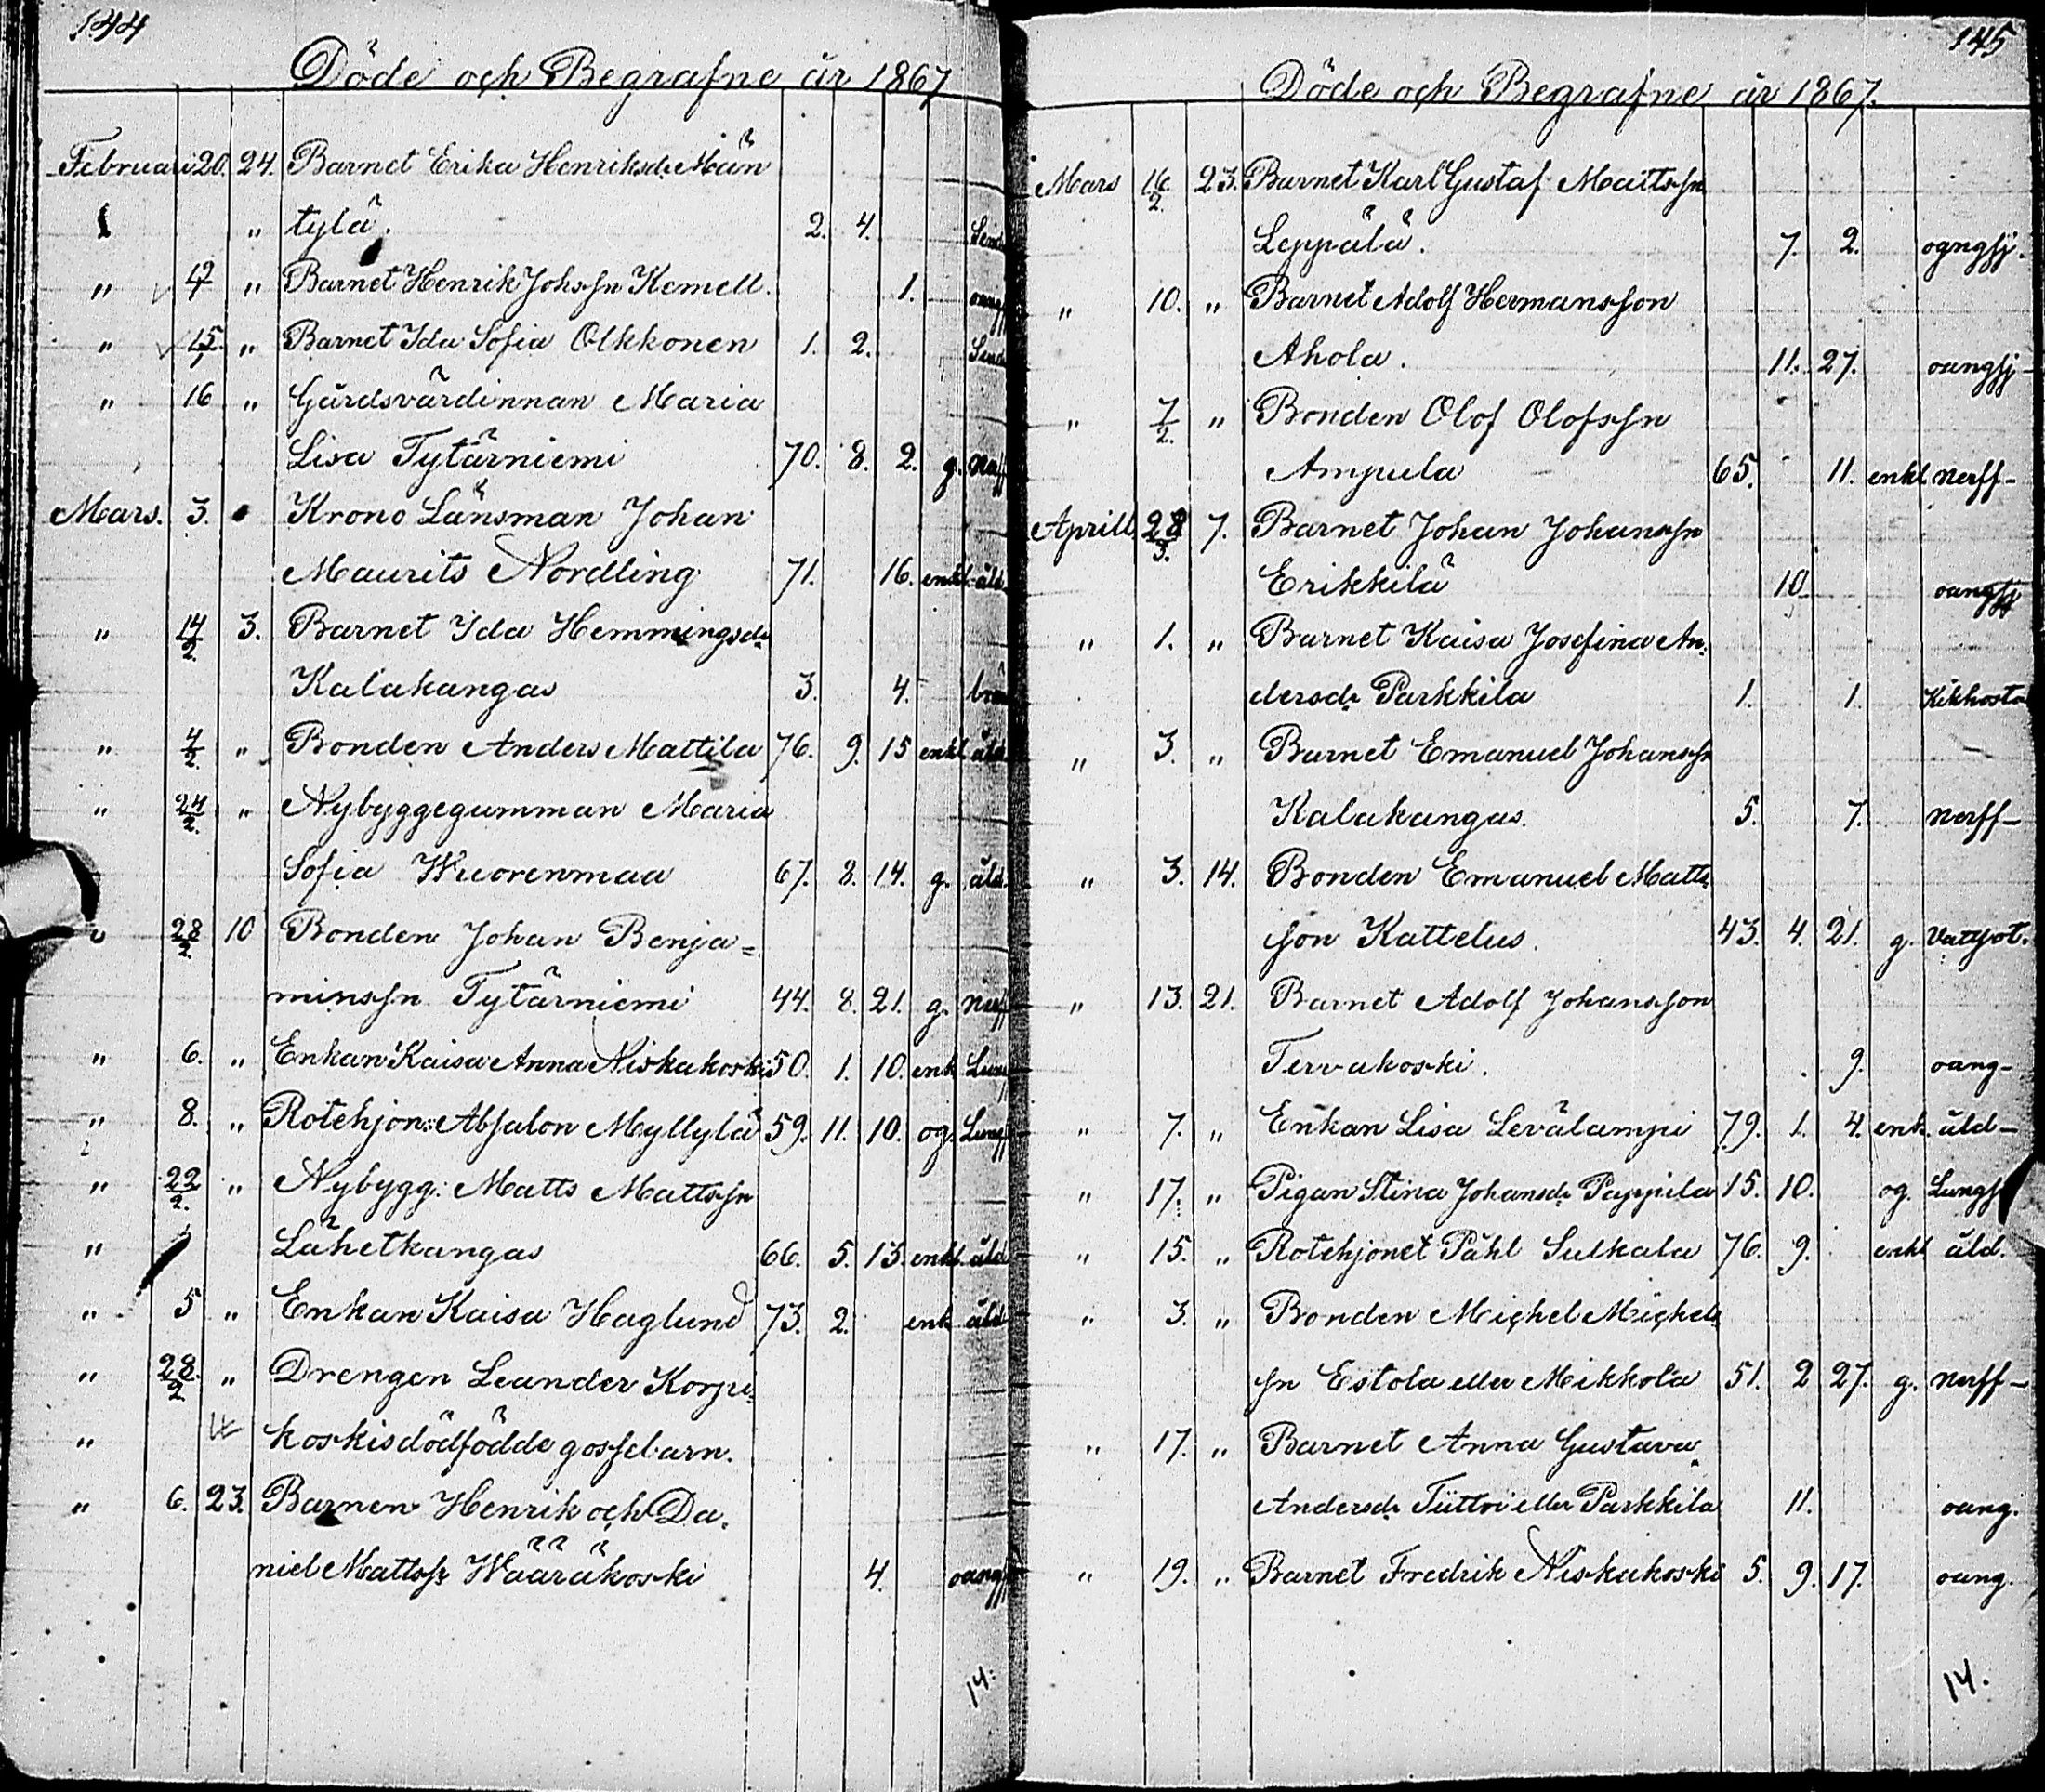 144
Döde och Begrafne år 1867
Februari 20. 24. Barnet Erika Henriksdr Män
" tylä. 2. 4.
" 17 " Barnet Henrik Johssn Kemell. 1. oangsj
" 15. " Barnet Ida Sofia Olkkonen 1. 2.
" 16 " Gårdsvärdinnan Maria
Lisa Tytärniemi 70. 8. 2. g.
Mars. 3. Krono Länsman Johan
Maurits Nordling 71. 16. enkl. åld
" 14/2. 3. Barnet Ida Hemmingsdr
Kalakangas 3. 4. brä
" 4/2. " Bonden Anders Mattila 76. 9. 15 enkl åld
" 24/2. " Nybyggegumman Maria
Sofia Wuorenmaa 67. 8. 14. g. åld.
" 28/2 10 Bonden Johan Benja=
minssn Tytärniemi 44. 8. 21. g. nerff
" 6. " Enkan Kaisa Anna Niskakoski 50. 1. 10. enk Lung
" 8. " Rotehjon: Absalon Myllylä 59. 11. 10. og. Lung
" 22/2. " Nybygg: Matts Mattssn
" Lähetkangas 66. 5. 13. enkl. åld
" 5 " Enkan Kaisa Haglund 73. 2. enk åld
" 28./2 " Drengen Leander Korpi
" koskis dödfödde gossebarn.
" 6. 23. Barnen Henrik och Da-
niel Mattssr Wääräkoski 4. oangsj
14.
145
Döde och Begrafne år 1867.
Mars 16/2. 23. Barnet Karl Gustaf Mattssn
Leppälä. 7. 2. ogngsj.
" 10. " Barnet Adolf Hermansson
Ahola. 11. 27. oangsj-
" 7/2. " Bonden Olof Olofssn
Ampula 65. 11. enkl nerff-
Aprill 28/3. 7. Barnet Johan Johanssn
Erikkilä 10. oangsj
" 1. " Barnet Kaisa Josefina An-
dersdr Parkkila 1. 1. Kikhosta
" 3. " Barnet Emanuel Johanssn
Kalakangas. 5. 7. nerff-
" 3. 14. Bonden Emanuel Matts-
son Kattelus. 43. 4. 21. g. Vattsot.
" 13. 21. Barnet Adolf Johansson
Tervakoski. 9. oang-
" 7. " Enkan Lisa Levälampi 79. 1. 4. enk. åld-
" 17. " Pigan Stina Johansdr Pappila 15. 10. og. Lungs
" 15. " Rotehjonet Påhl Sulkala 76. 9. enkl åld.
" 3. " Bonden Michel Michels-
sn Estola eller Mikkola 51. 2 27. g. nerff-
" 17. " Barnet Anna Gustava
Andersdr Tiitto eller Parkkila 11. oang.
" 19. " Barnet Fredrik Niskakoski 5. 9. 17. oang.
14.